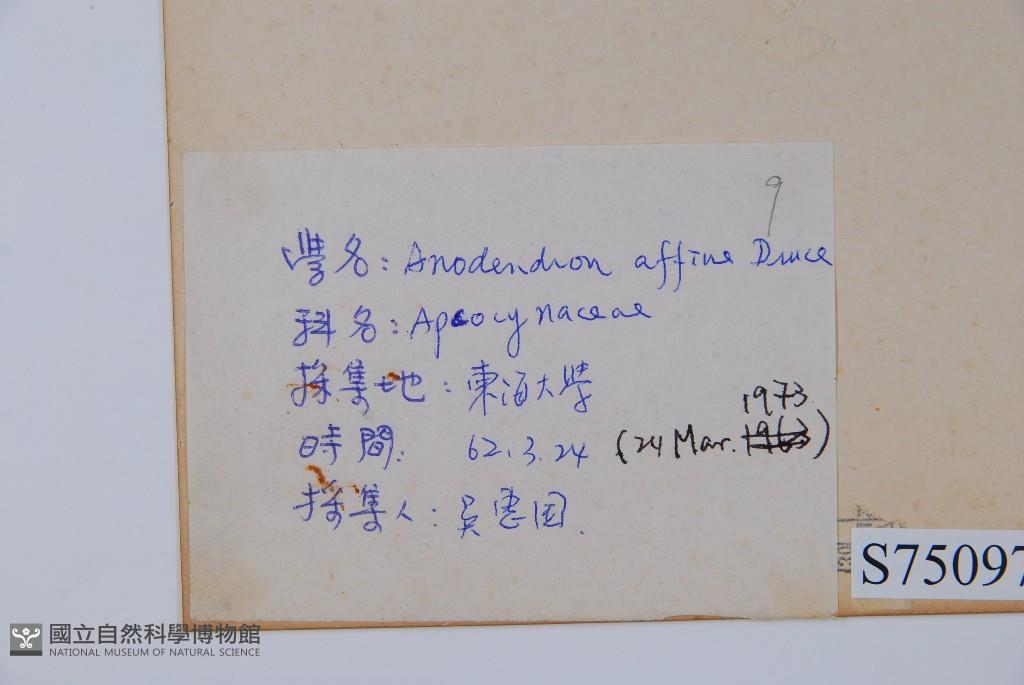 9
學名: Anodendron affine Druce
科名: Apocynaceae
採集地: 東海大學
1973
時間: 62.3.24 (24 Mar. 1963)
採集人: 吳憲国.
S75097
國立自然科學博物館
NATIONAL MUSEUM OF NATURAL SCIENCE